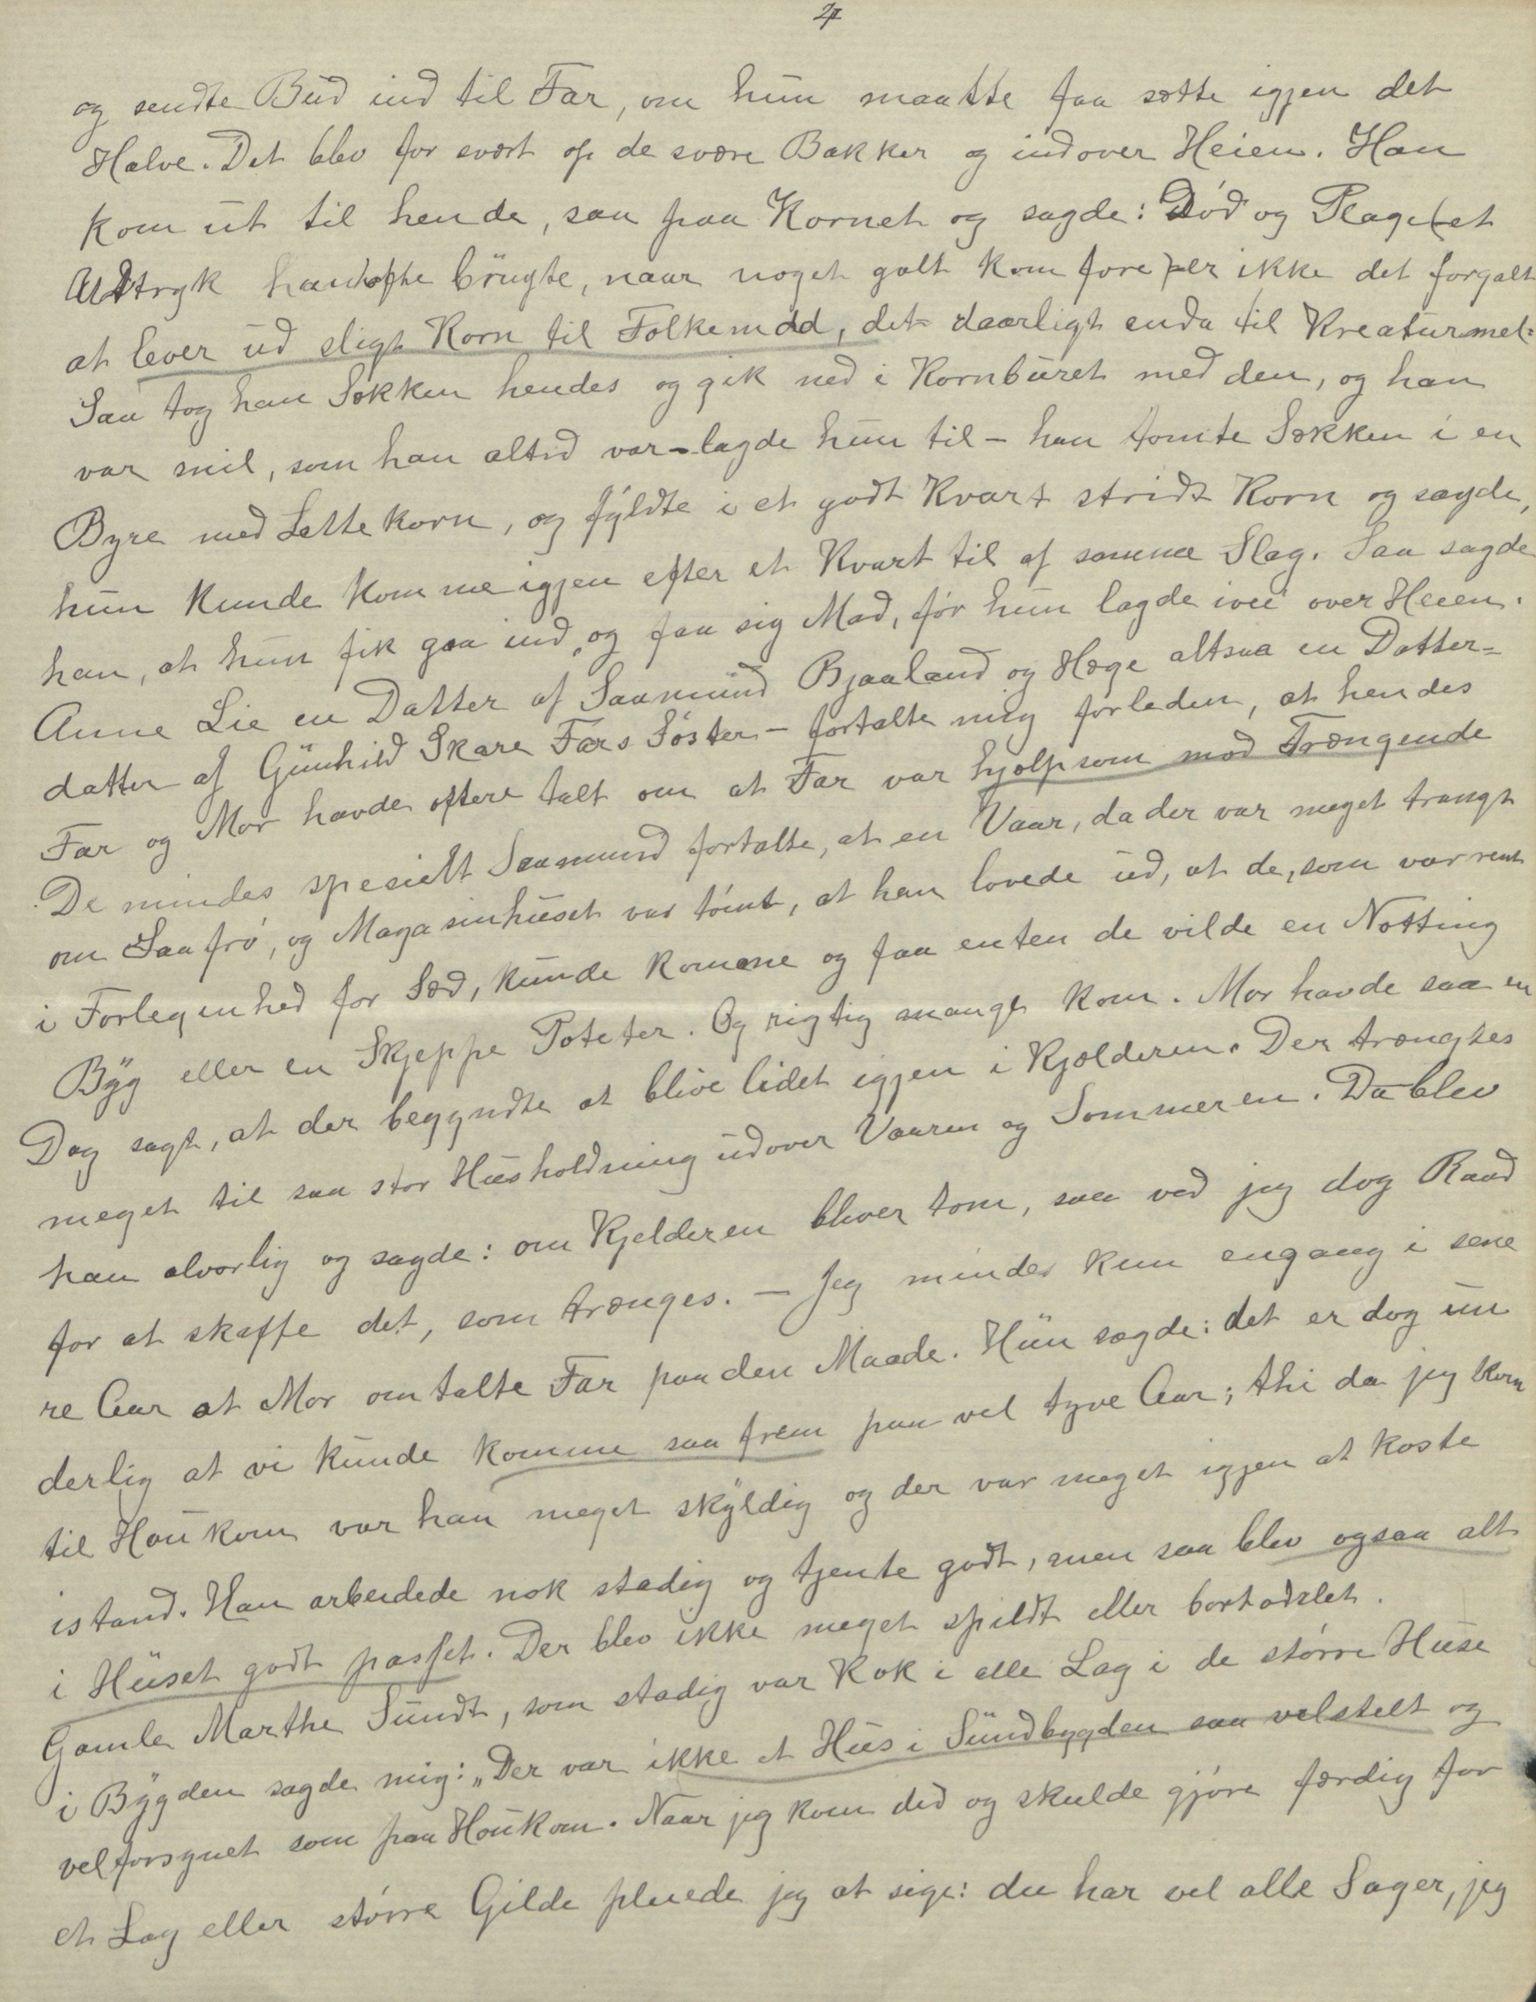 4
og sendte Bud ind til Far, om hun maatte faa sætte igjen det
Halve. Det blev for svært op de svære Bakker og indover Heien. Han
kom ut til hende, saa paa Kornet og sagde: Død og Plage (et
Udtryk han ofte brugte, naar noget galt kom fore) er ikke det forgalt
at lever ud sligt Korn til Folkemad, det daarligt enda til Kreaturmel:
Saa tog han Sækken hendes og gik ned i Kornburet med den, og han
var snil, som han altid var – lagde hun til – han tømte Sækken i en
Byre med Lettekorn, og fyldte i et godt Kvart stridt Korn og sagde,
hun kunde komme igjen efter et Kvart til af samme Slag. Saa sagde
han, at hun fik gaa ind, og faa sig Mad, før hun lagde ivei over Heien.
Anne Lie en Datter af Saamund Bjaaland og Hæge altsaa en Datter-
datter af Gunhild Skare Fars Søster – fortalte mig forleden, at hendes
Far og Mor havde oftere talt om at Far var hjælpsom mod Trængende
De mindes spesielt Saamund fortalte, at en Vaar, da der var meget trangt
om Saafrø, og Magasinhuset var tømt, at han lovede ud, at de, som var rent
i Forlegenhed for Sæd, kunde komme og faa enten de vilde en Notting
Byg eller en Skjeppe Poteter. Og rigtig mange kom. Mor havde saa en
Dag sagt, at der begyndte at blive lidet igjen i Kjælderen. Der trængtes
meget til saa stor Husholdning udover Vaaren og Sommeren. Da blev
han alvorlig og sagde: om Kjelderen bliver tom, saa ved jeg dog Raad
for at skaffe det, som trænges. – Jeg mindes kun engang i sene
re Aar at Mor omtalte Far paa den Maade. Hun sagde: det er dog un
derlig at vi kunde komme saa frem paa vel tyve Aar; thi da jeg kom
til Houkom var han meget skyldig og der var meget igjen at koste
istand. Han arbeidede nok stadig og tjente godt, men saa blev ogsaa alt
i Huset godt passet. Der blev ikke meget spildt eller bortødslet.
Gamle Marthe Sundt, som stadig var Kok i alle Lag i de større Huse
i Bygden sagde mig: „Der var ikke et Hus i Sundbygden saa velstelt og
velforsynet som paa Houkom. Naar jeg kom did og skulde gjøre færdig for
et Lag eller større Gilde pleiede jeg at sige: du har vel alle Sager, jeg